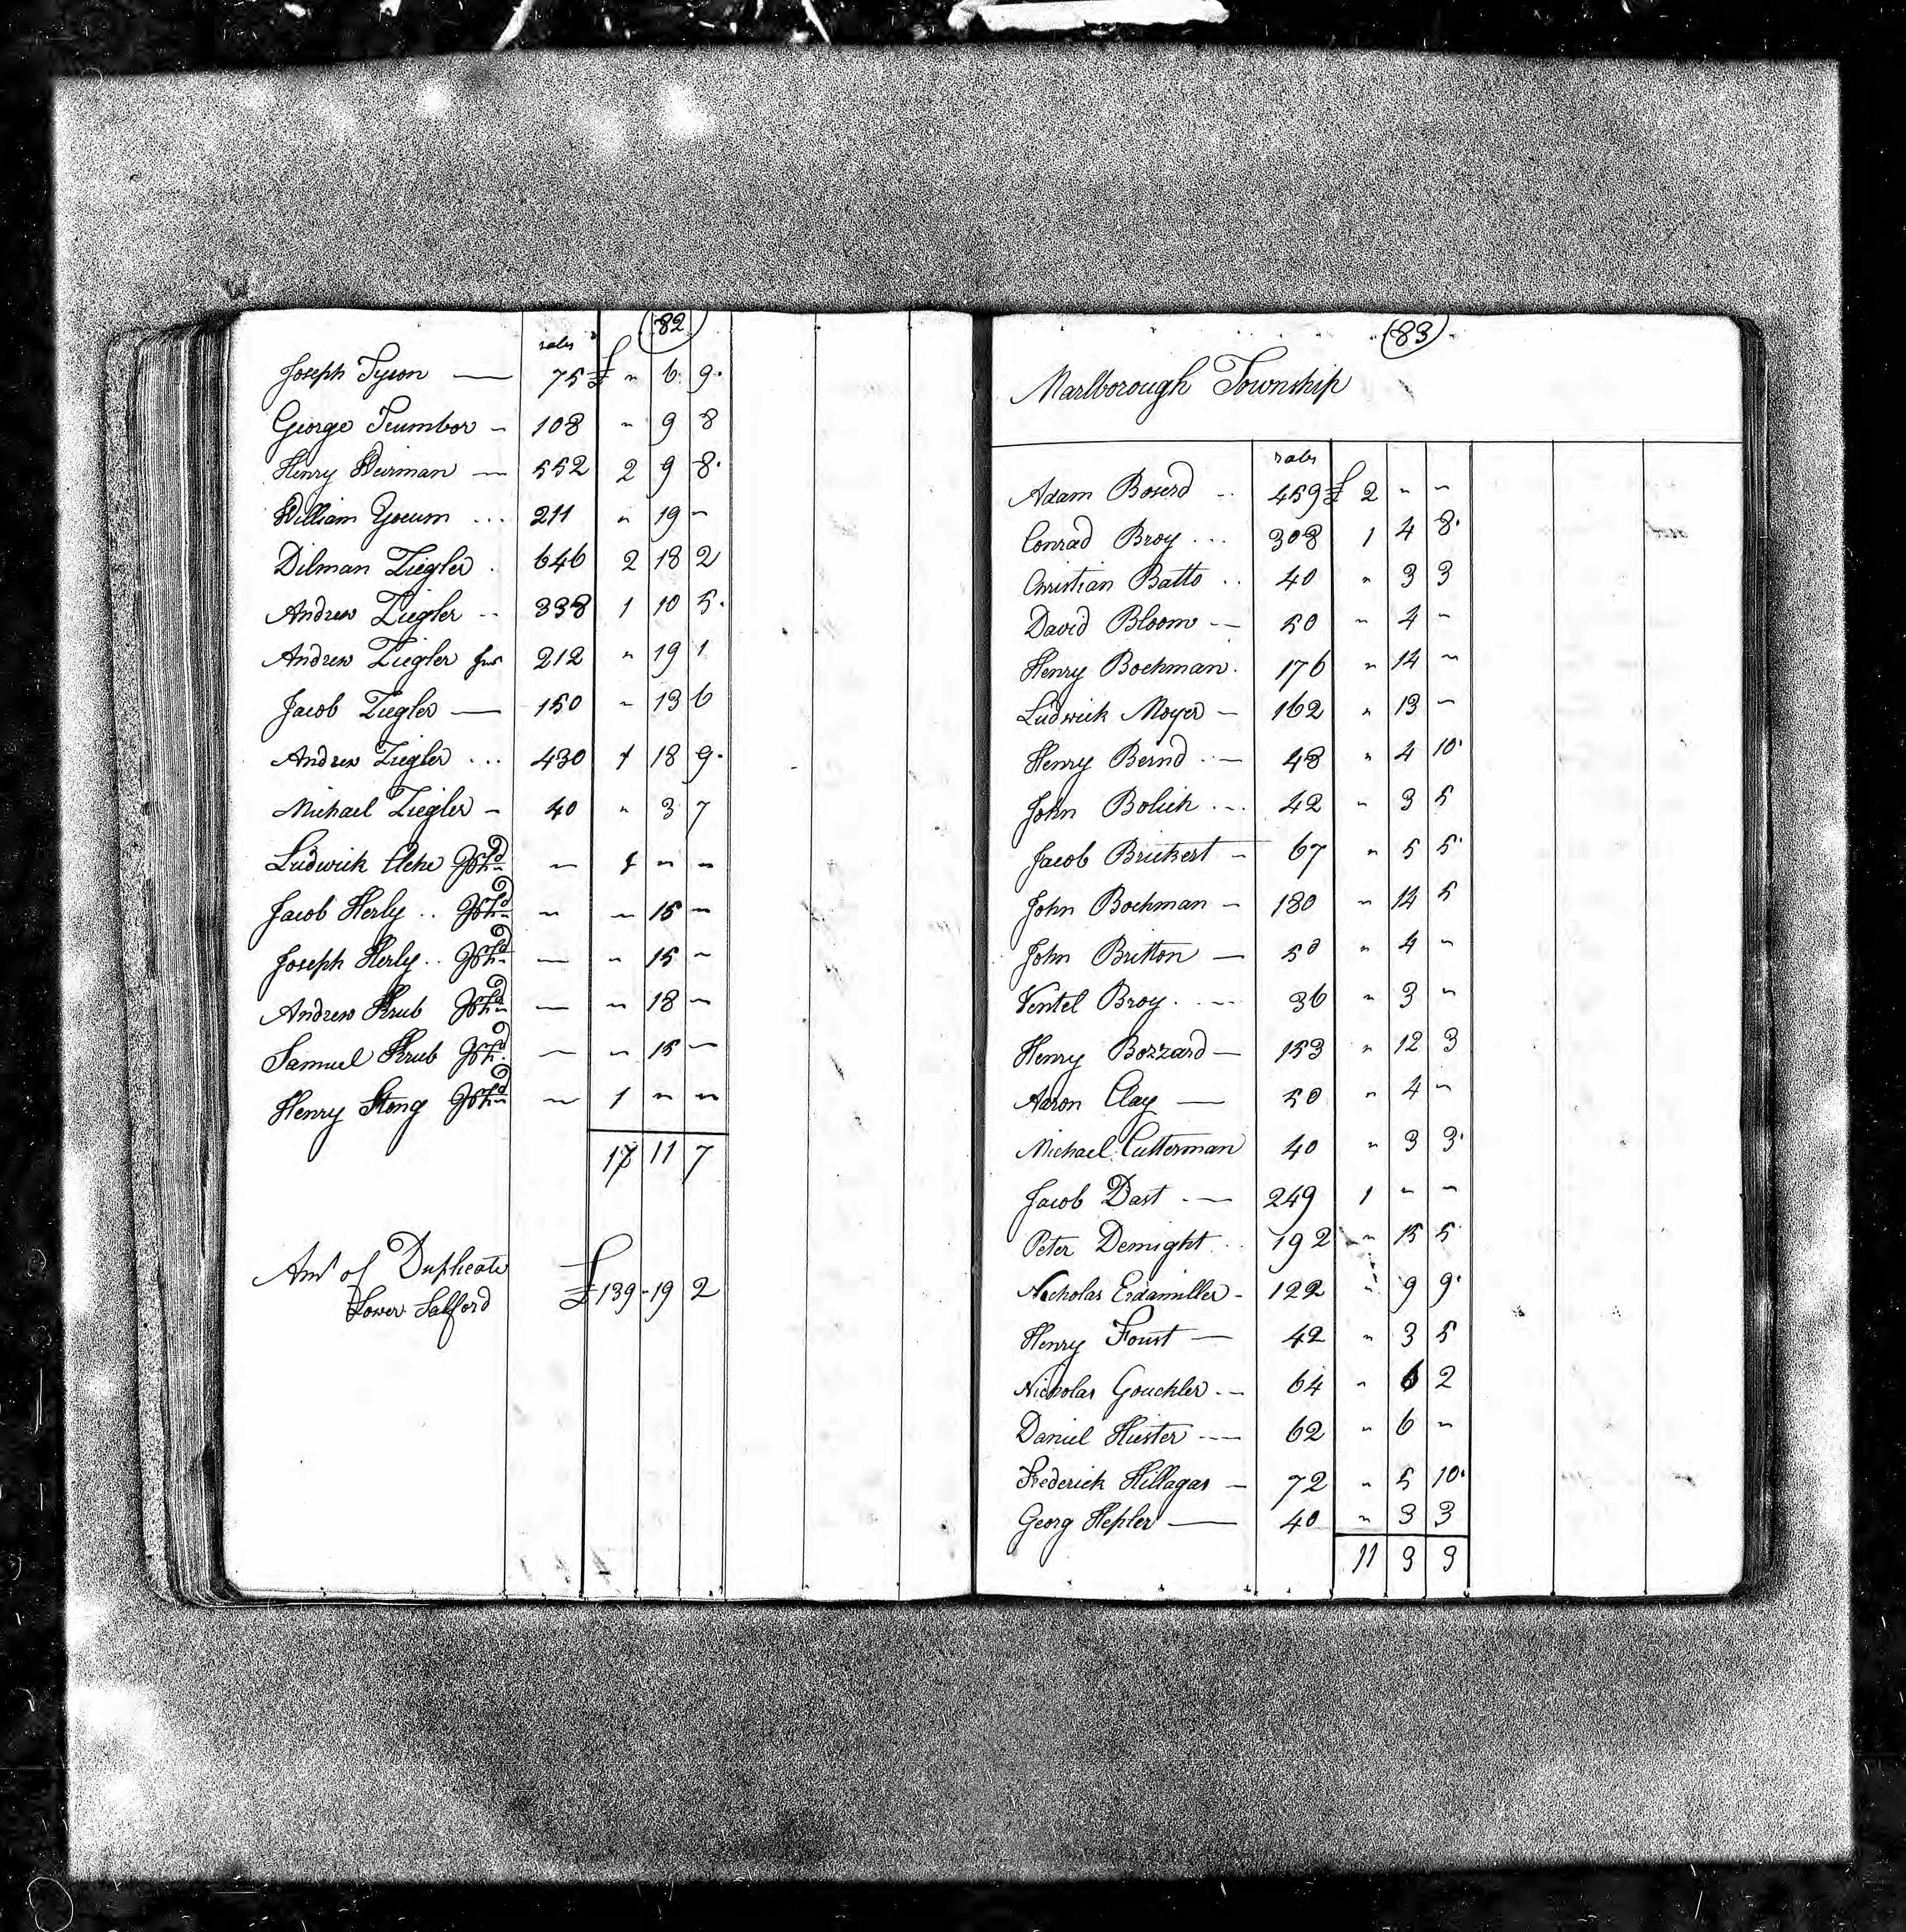 82
rates
Joseph Tyson — 75 £ " 6 9.
George Trumbor - 108 " 9 8
Henry Weirman — 552 2 9 8.
William Yocum ... 211 " 19 -
Dilman Ziegler . 646 2 18 2
Andrew Ziegler .. 338 1 10 5.
Andrew Ziegler Junr 212 " 19 1
Jacob Ziegler — 150 - 13 6
Andrew Ziegler ... 430 1 18 9.
Michael Ziegler - 40 " 3 7
Ludwick - 1 - -
Jacob Herly .. - - 15 -
Joseph Herly .. — - 15 -
Andrew Krub — - 18 -
Samuel Krub — - 15 -
Henry Stong - 1 - -
17 11 7
Amt of Duplicate
Lower Salford £ 139 - 19 2
83
Marlborough Township
rates
Adam Boserd .. 459 £ 2 - -
Conrad Broy ... 308 1 4 8.
Christian Batto .. 40 " 3 3
David Bloom -- 50 " 4 -
Henry Bochman . 176 " 14 -
Ludwick Moyer - 162 " 13 -
Henry Bernd .- 48 " 4 10.
John Bolich ... 42 " 3 5
Jacob Brickert - 67 " 5 5.
John Bochman - 180 - 14 5
John Britton — 50 " 4 -
Ventel Broy . -- 36 " 3 -
Henry Bozzard — 153 " 12 3
Aaron Clay — 50 " 4 -
Michael Cutterman 40 " 3 3.
Jacob Dast .— 249 1 - -
Peter Demight .. 192 - 15 5
Nicholas Erdamiller - 122 " 9 9.
Henry Foust — 42 " 3 5
Nicholas Gouchler .- 64 " 6 2
Daniel Hiester --- 62 " 6 -
Frederick Hillagas - 72 " 5 10.
Georg Hepler — 40 " 3 3
11 3 3